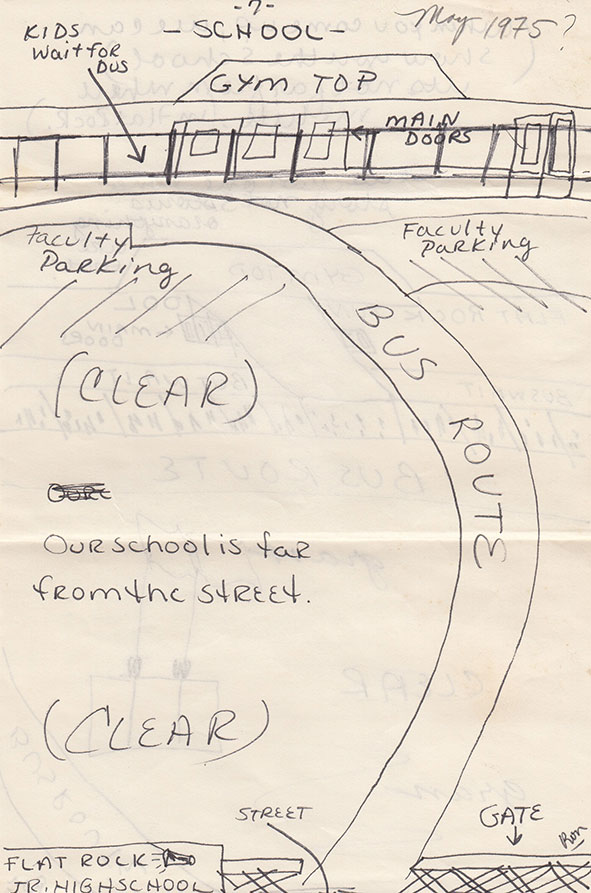 -7-
May 1975?
KIDS
Wait for
BUS
-SCHOOL-
GYM TOP
MAIN
DOORS
Faculty
Parking
Faculty
Parking
BUS ROUTE
(CLEAR)
Our school is far
from the STREET.
(CLEAR)
STREET
GATE
Ron
FLAT ROCK
JR. HIGH SCHOOL